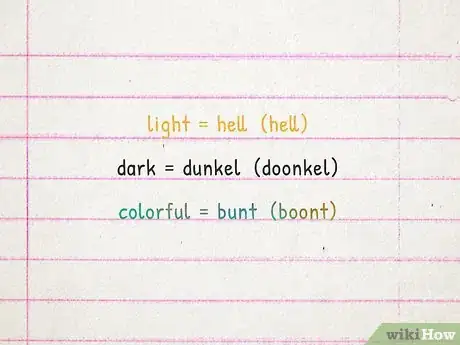 light = hell (hell)
dark = dunkel (doonkel)
colorful = bunt (boont)
wikiHow